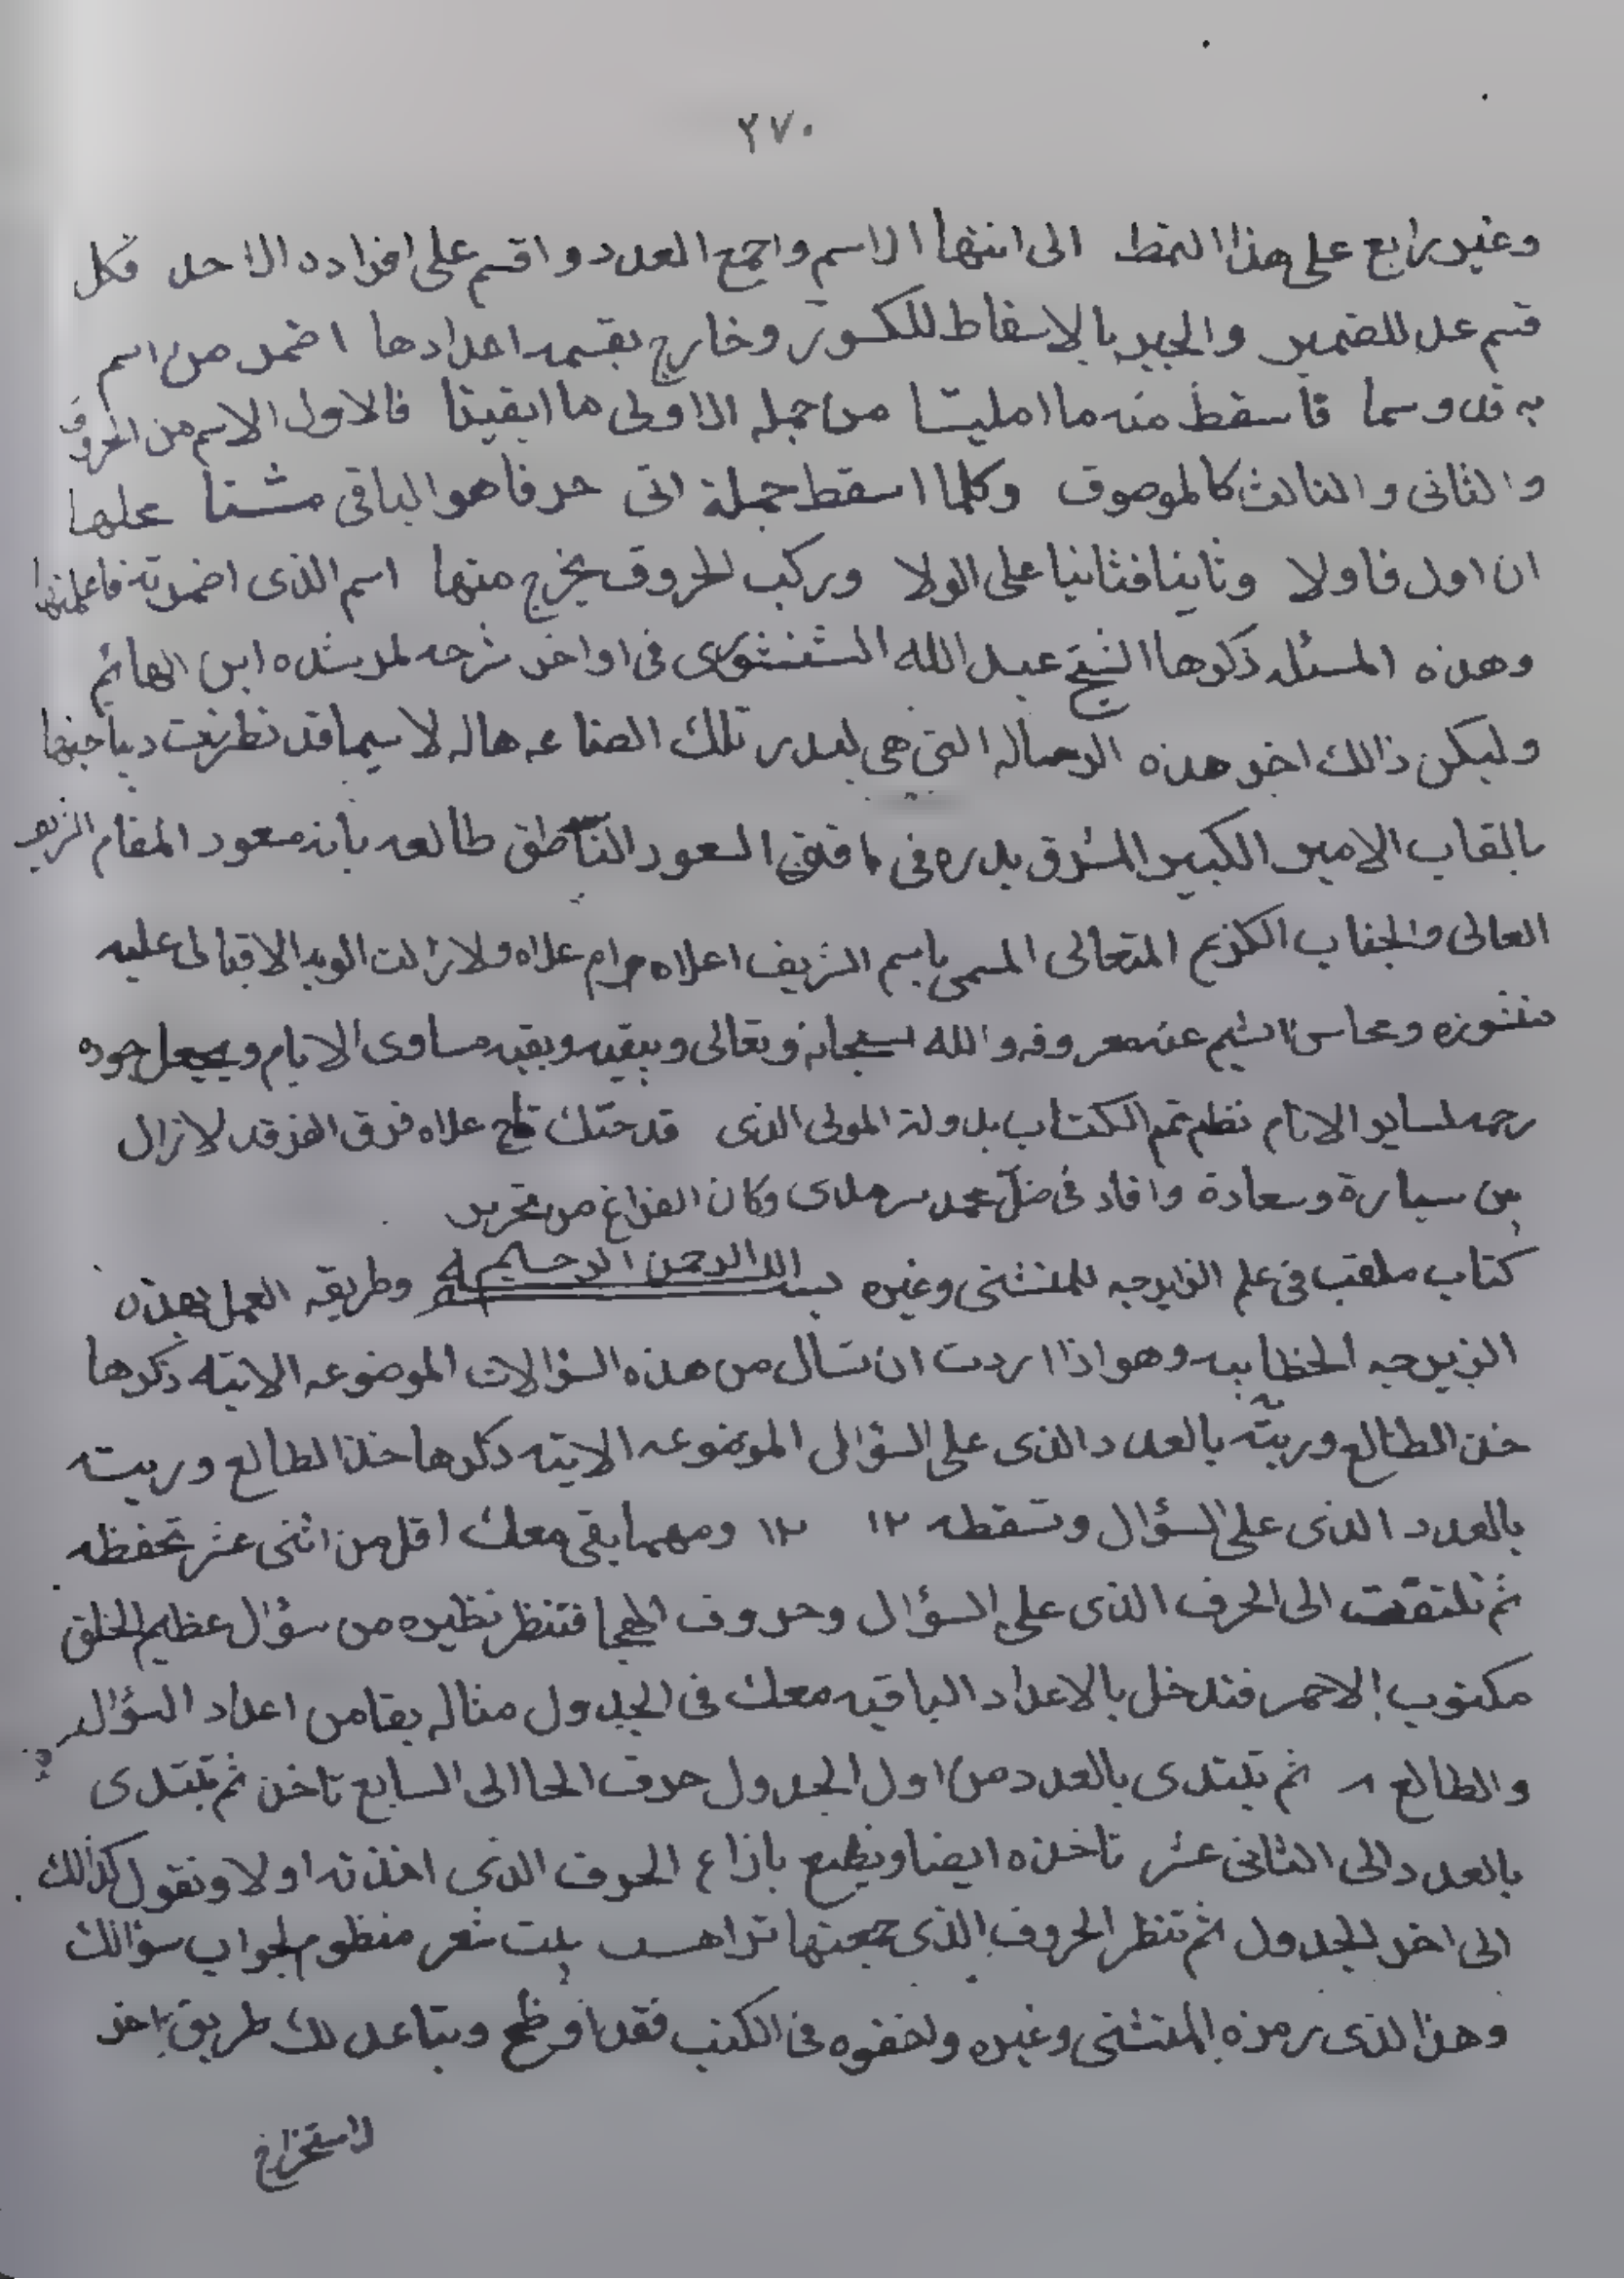 ٢٧٠
وغير رابع على هذا النمط الى انتها الاسم واجمع العدد و اقسم على افراده الاحد فكل
قسم عد للضمير والجبر بالاسقاط للكسور وخارج بقسمه اعدادها اضمر من اسم
به قد وسما فأسقط منه ما امليتا من جمله الاولى ما ابقيتا فالاول الاسم من الحروف
والثانى و الثالث كالموصوف وكلما اسقط جملة اتى حرفا هو الباقى مثبتا علها
ان اول فاولا وثانيا فثانيا على الولا وركب الحروف يخرج منها اسم الذى اضمرته فاعلمنها
وهذه المسئله ذكرها الشيخ عبد الله الشنشورى فى اواخر شرحه لمرشده ابن الهائم
وليكن ذالك اخر هذه الرساله التى هى لبدر تلك الصناعه هاله لا سيما قد نظرت ديباجتها
بالقاب الامير الكبير المشرق بدره فى افق السعود الناطق طالعه بانه مسعود المقام
العالى والجناب الكريم المتعالى المسمى باسم الشريف اعلاه دام علاه ولا زالت الويه الاقبال عليه
منشوره ومحاسن الشيم عنه معروفه والله سبحانه وتعالى ويبقيه ويقيه مساوى الايام ويجعل جوده
رحمه لساير الانام نظم تم الكتاب بدولة المولى الذى قد حتك تاج علاه فرق الفرقد لازال
من سيارة وسعادة وافاد فى ضل مجد سرمدى وكان الفراغ من تحرير
كتاب ملقب فى علم الزايرجه للمنتشى وغيره بسم الله الرحمن الرحيم وطريقه العمل بهذه
الزيرجه الخطابيه وهو اذا اردت ان تسال من هذه السؤالات الموضوعه الاتيه ذكرها
خذ الطالع وربته بالعدد الذى على السؤال الموضوعه الاتيه ذكرها خذ الطالع وربيته
بالعدد الذى على السؤال وتسقطه ١٢ ١٢ ومهما بقى معك اقل من اثنى عشر تحفظه
ثم تلتفت الى الحرف الذى على السؤال وحروف الهجا فتنظر نظيره من سؤال عظيم الخلق
مكتوب بالاحمر فتدخل بالاعداد الباقيه معك فى الجدول مثاله بقا من اعداد السؤال
والطالع ٨ ثم تبتدى بالعدد من اول الجدول حرف الحا الى السابع تاخذ ثم تبتدى
بالعدد الى الثانى عشر تاخذه ايضا وتضع بازاء الحرف الذى اخذته اولا وتقول كذالك
الى اخر الجدول ثم تنظر الحروف الذى جمعتها تراهم بيت شعر منظوم لجواب سؤالك
وهذا الذى رمزه المنتشى وغيره واخفوه فى الكتب فقد اوضح ويتاعد لك طريق اخر
لاستخراج